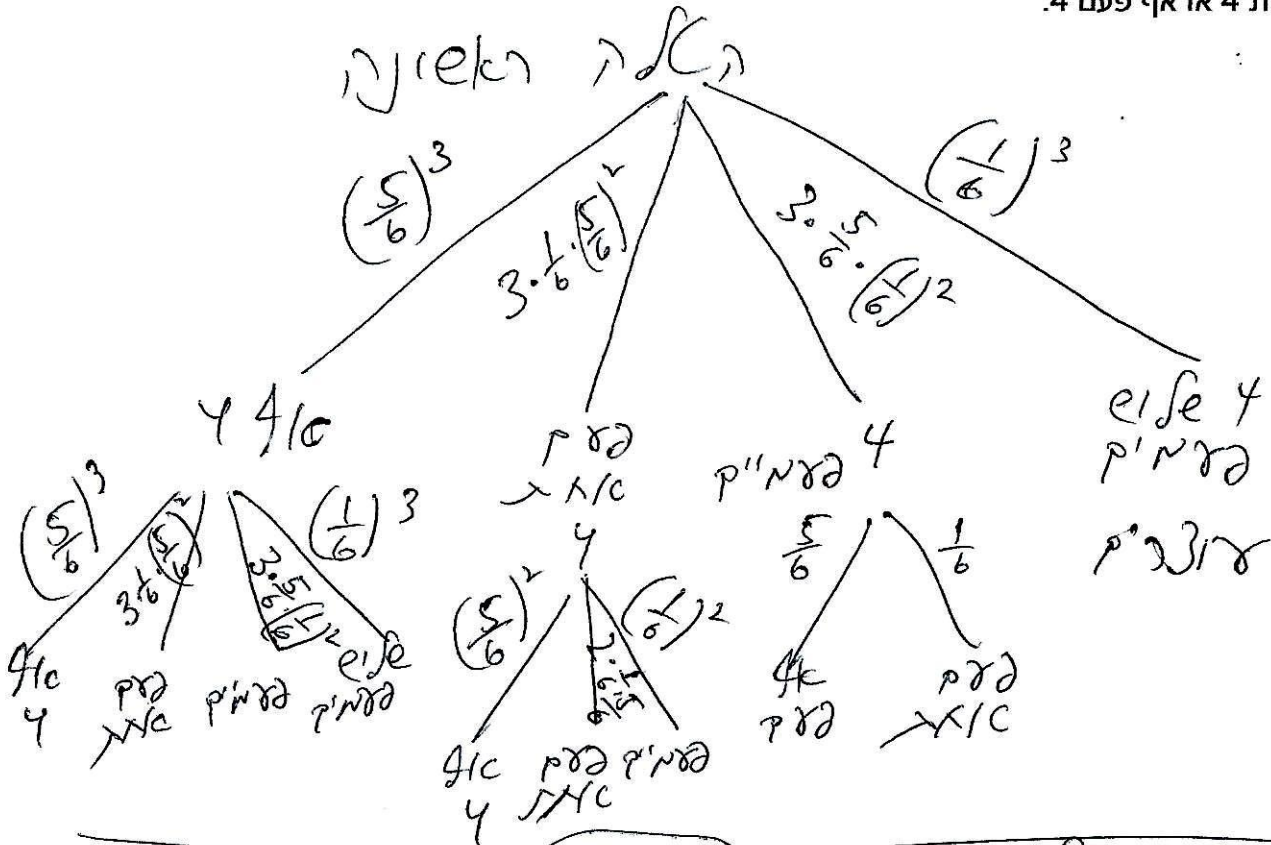 ת 4 או אף פעם 4.
:
הטלה ראשונה
(5/6)^3
3·1/6·(5/6)^2
3·5/6·(1/6)^2
(1/6)^3
אף 4
פעם אחת 4
4 פעמיים
4 שלוש פעמים
עוצרים
(5/6)^3
3·1/6·(5/6)^2
3·5/6·(1/6)^2
(1/6)^3
(5/6)^2
2·1/6·5/6
(1/6)^2
5/6
1/6
אף 4
פעם אחת
פעמיים
שלוש פעמים
אף 4
פעם אחת
פעמיים
אף פעם
פעם אחת